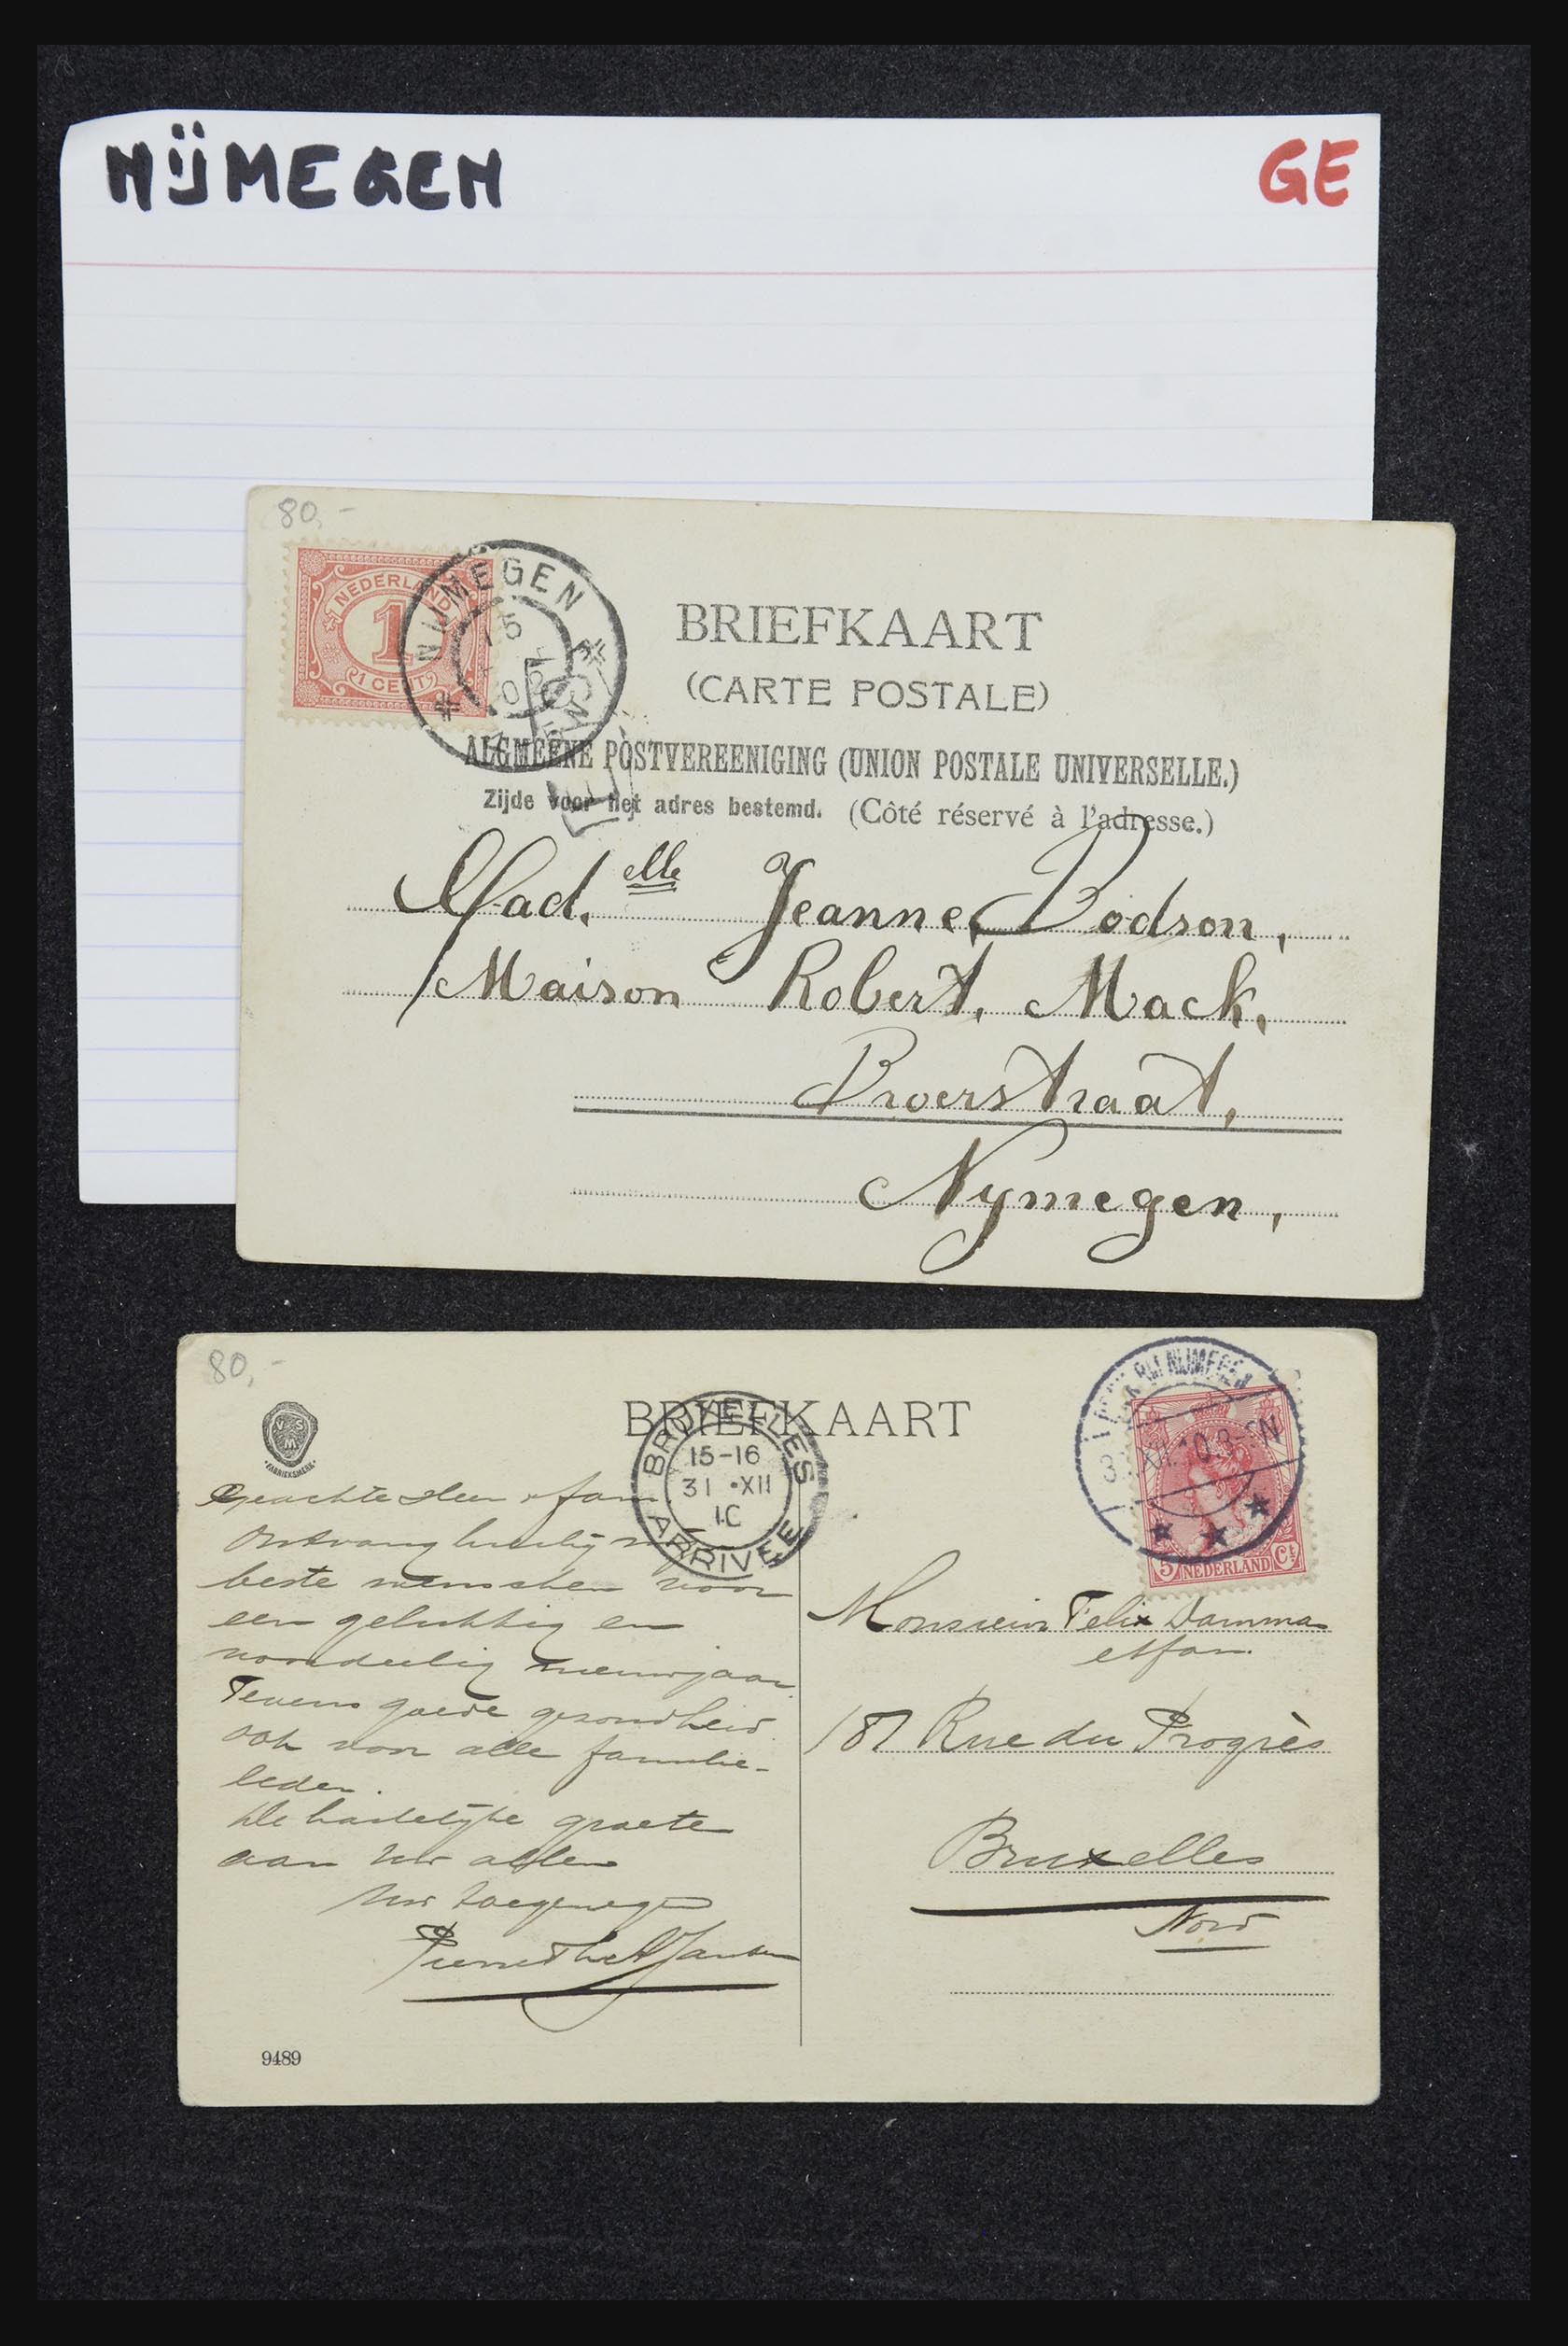 NIJMEGEN
GE
80,-
NEDERLAND
1
1 CENT
NIJMEGEN
BRIEFKAART
(CARTE POSTALE)
ALGMEENE POSTVEREENIGING (UNION POSTALE UNIVERSELLE.)
Zijde voor het adres bestemd. (Côté réservé à l'adresse.)
Mad.elle Jeanne Bodson,
Maison Robert, Mack,
Broerstraat,
Nymegen,
80,-
VSM
FABRIEKSMERK
BRIEFKAART
BRUXELLES
15-16
31 •XII
10
ARRIVEE
NIJMEGEN
5 NEDERLAND Ct
Geachte Heer & fam
Ontvang hierbij mijn
beste wenschen voor
een gelukkig en
voordeelig nieuwjaar.
Tevens goede gezondheid
ook voor alle familie-
leden.
De hartelijke groeten
aan Uw allen
Uw toegenegen
Monsieur Felix Damman
et fam.
187 Rue du Progrès
Bruxelles
Nord
9489